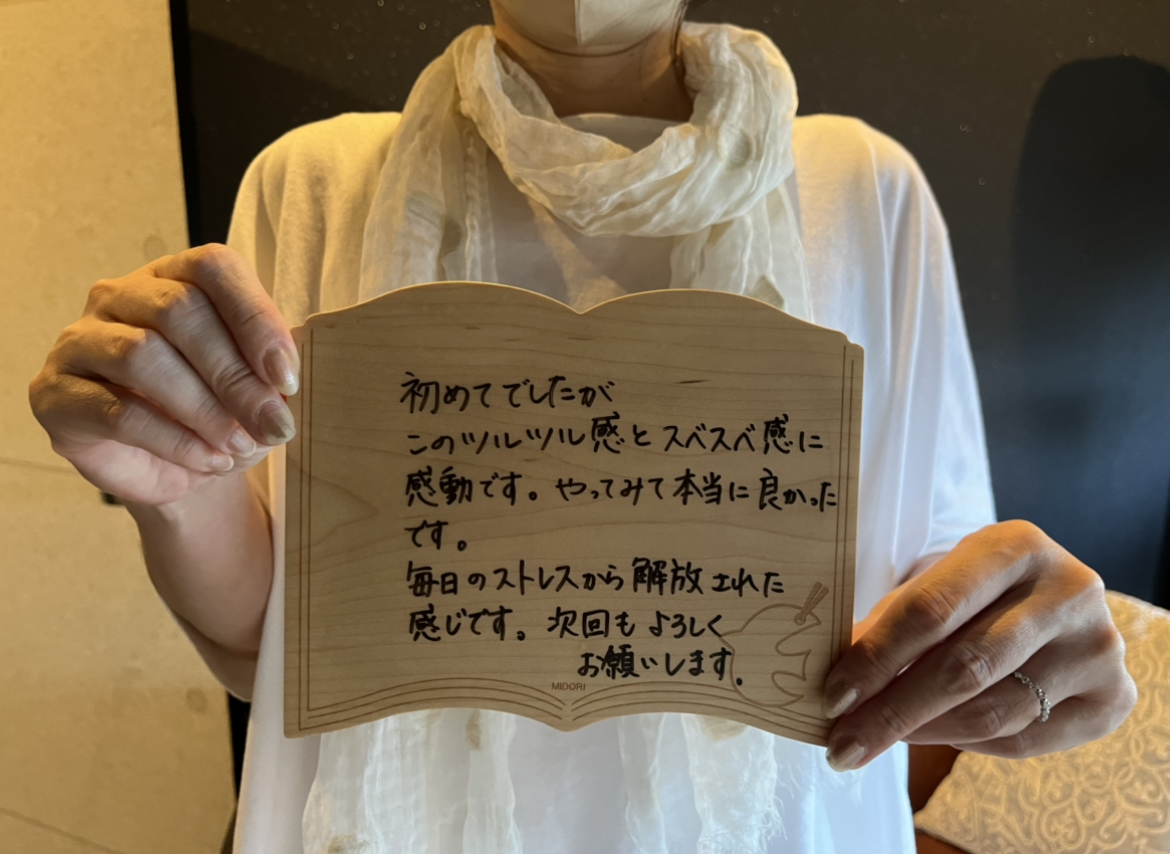 初めてでしたが
このツルツル感とスベスベ感に
感動です。やってみて本当に良かった
です。
毎日のストレスから解放された
感じです。次回もよろしく
お願いします。
MIDORI